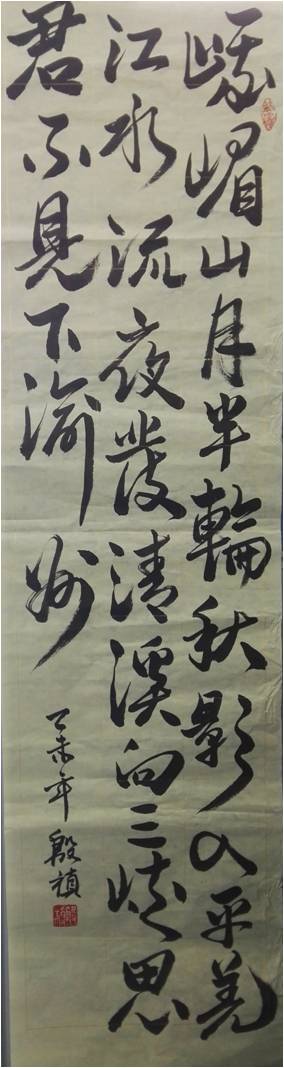 峨嵋山月半輪秋影入平羌
江水流夜發清溪向三峽思
君不見下渝州
乙未年 殷禎